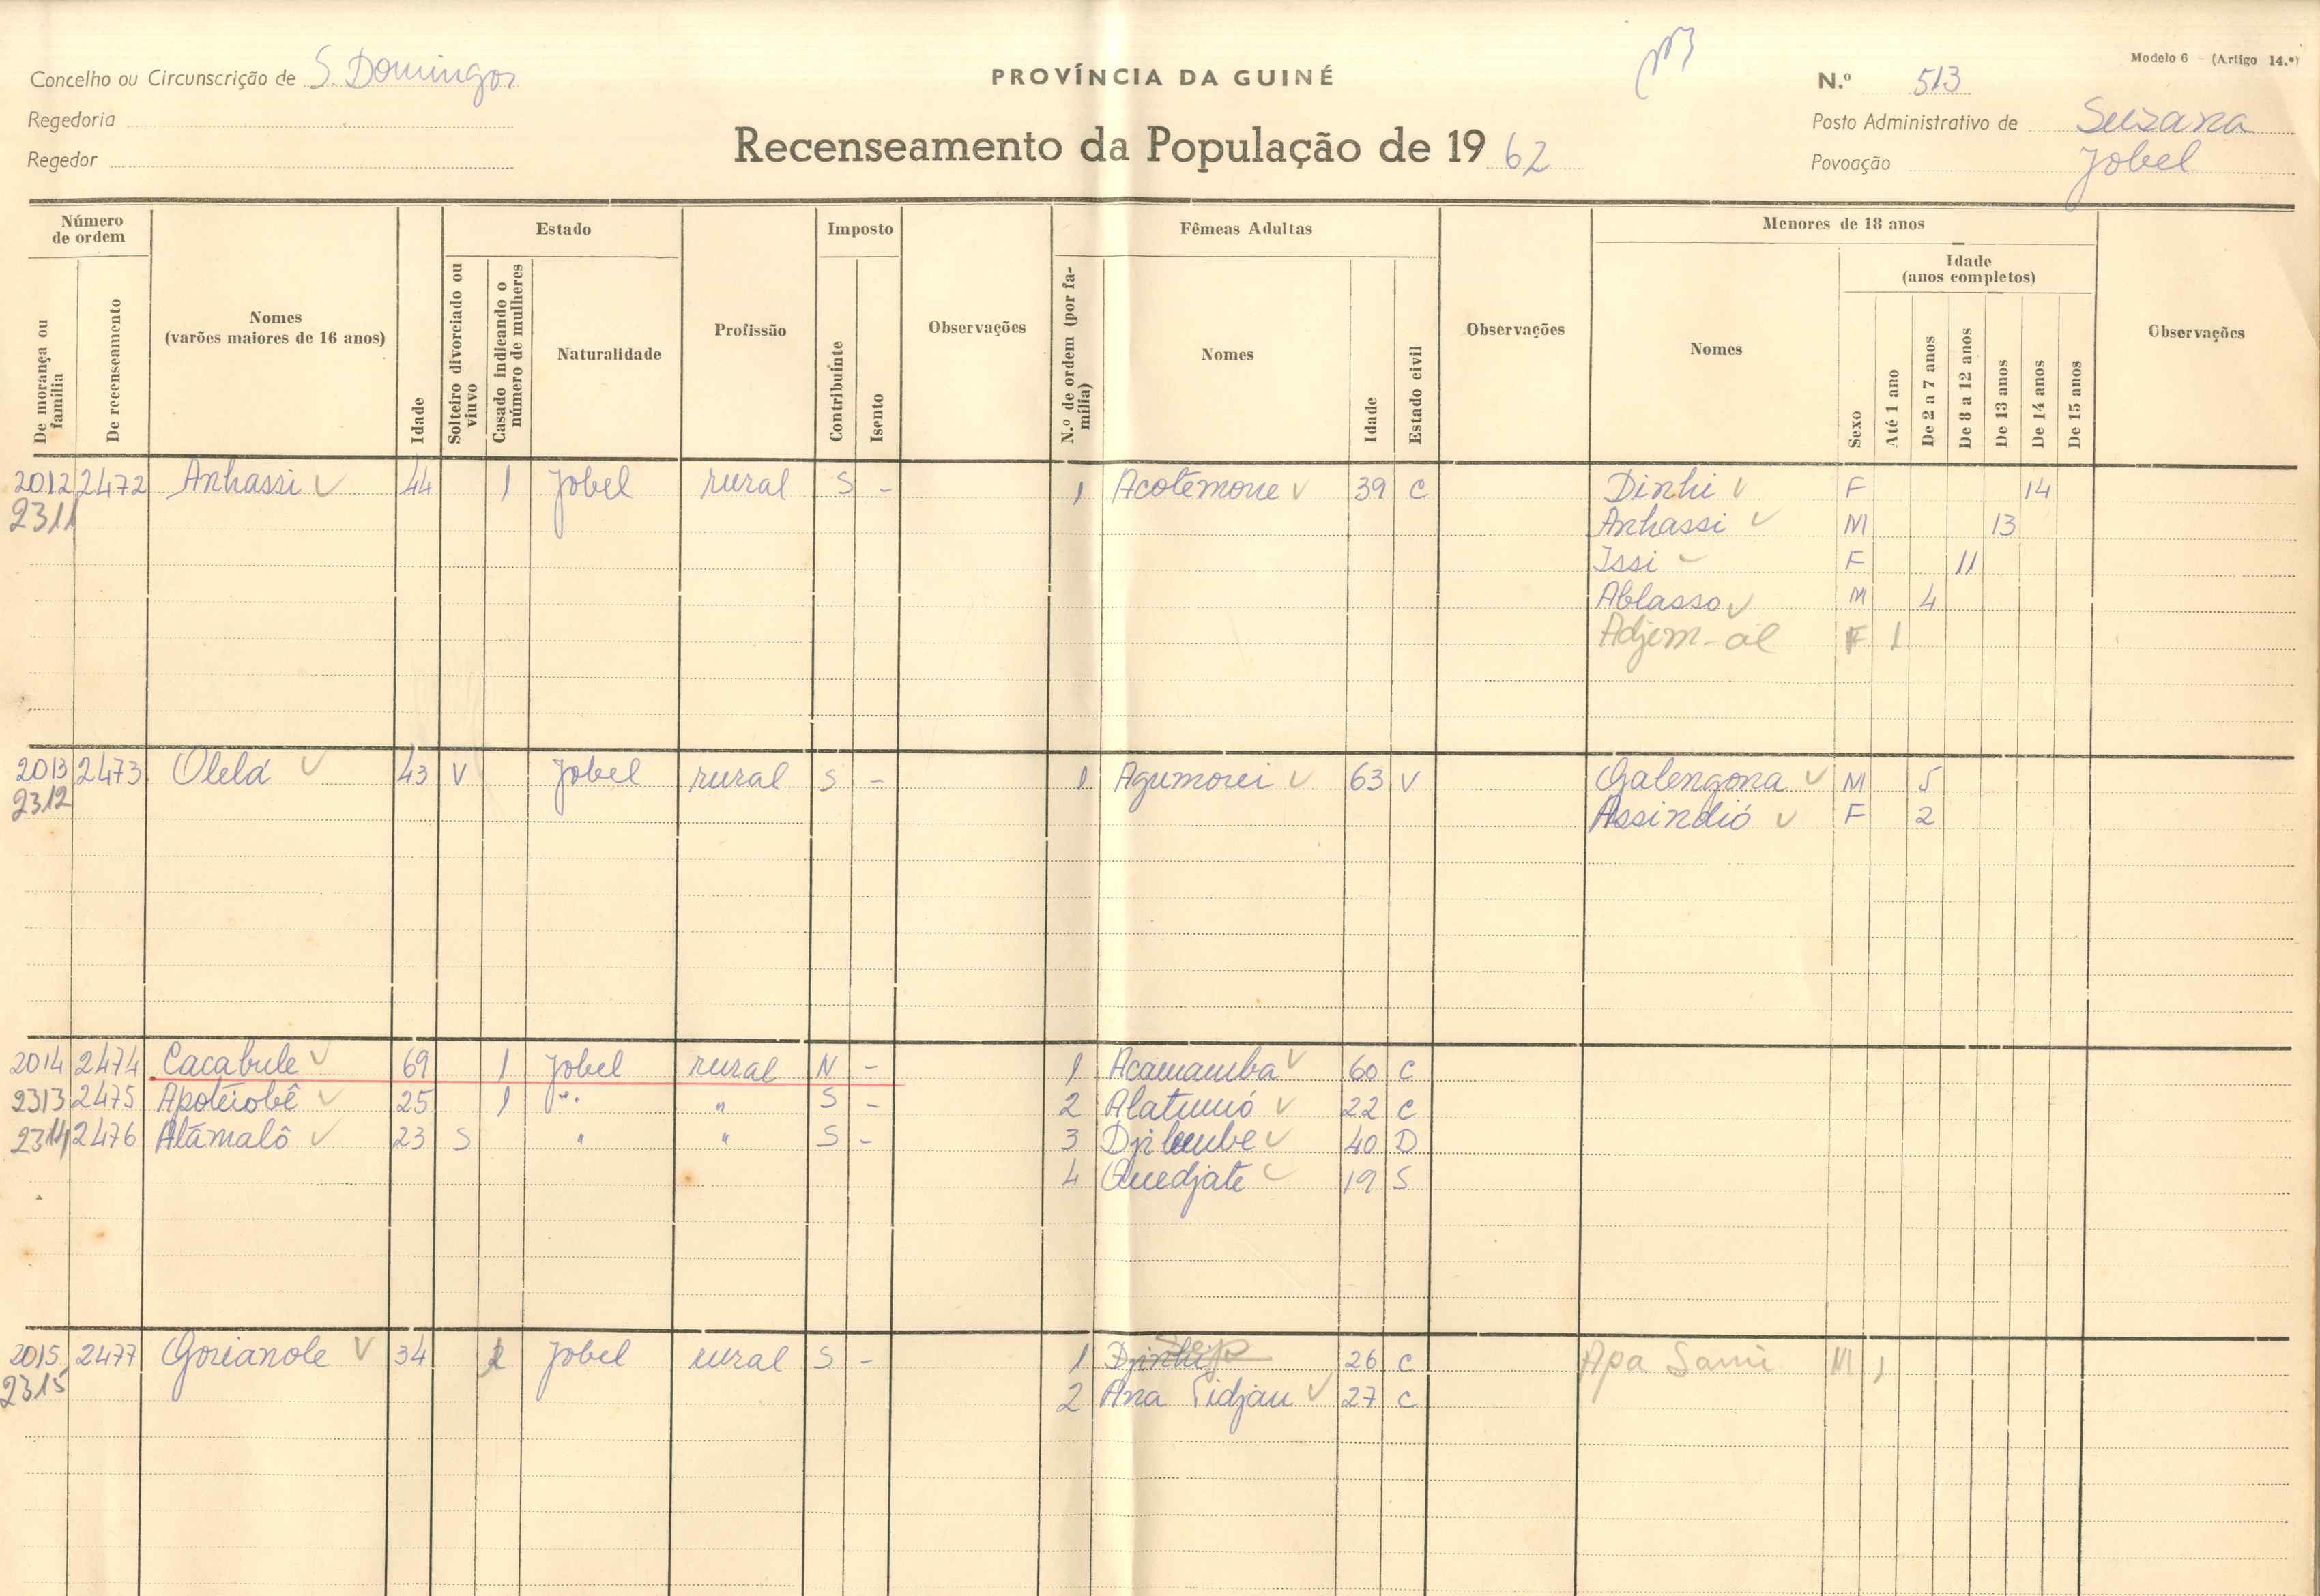 Modelo 6 - (Artigo 14.º)
Concelho ou Circunscrição de S. Domingos
PROVÍNCIA DA GUINÉ
N.º 513
Regedoria
Posto Administrativo de Suzana
Regedor
Recenseamento da População de 1962
Povoação Jobel
Número de ordem
De morança ou família
De recenseamento
Nomes (varões maiores de 16 anos)
Idade
Estado
Solteiro divorciado ou viuvo
Casado indicando o número de mulheres
Naturalidade
Profissão
Imposto
Contribuínte
Isento
Observações
Fêmeas Adultas
N.º de ordem (por família)
Nomes
Idade
Estado civil
Observações
Menores de 18 anos
Nomes
Sexo
Idade (anos completos)
Até 1 ano
De 2 a 7 anos
De 8 a 12 anos
De 13 anos
De 14 anos
De 15 anos
Observações
2012 2472 Anhassi 44 1 Jobel rural S - 1 Acotemone 39 C Dinhi F 14
2311 Anhassi M 13
Issi F 11
Ablasso M 4
Adjem-al F 1
2013 2473 Olelá 43 V Jobel rural S - 1 Agumorei 63 V Galengona M 5
2312 Assindió F 2
2014 2474 Cacabule 69 1 Jobel rural N - 1 Acamamba 60 C
2313 2475 Apotéiobê 25 1 " " S - 2 Alatumó 22 C
2314 2476 Alâmalô 23 S " " S - 3 40 D
4 Quedjate 19 S
2015 2477 Gorianole 34 2 Jobel rural S - 1 Djinhi 26 C Apa Sami M 1
2315 2 Ana Tidjau 27 C